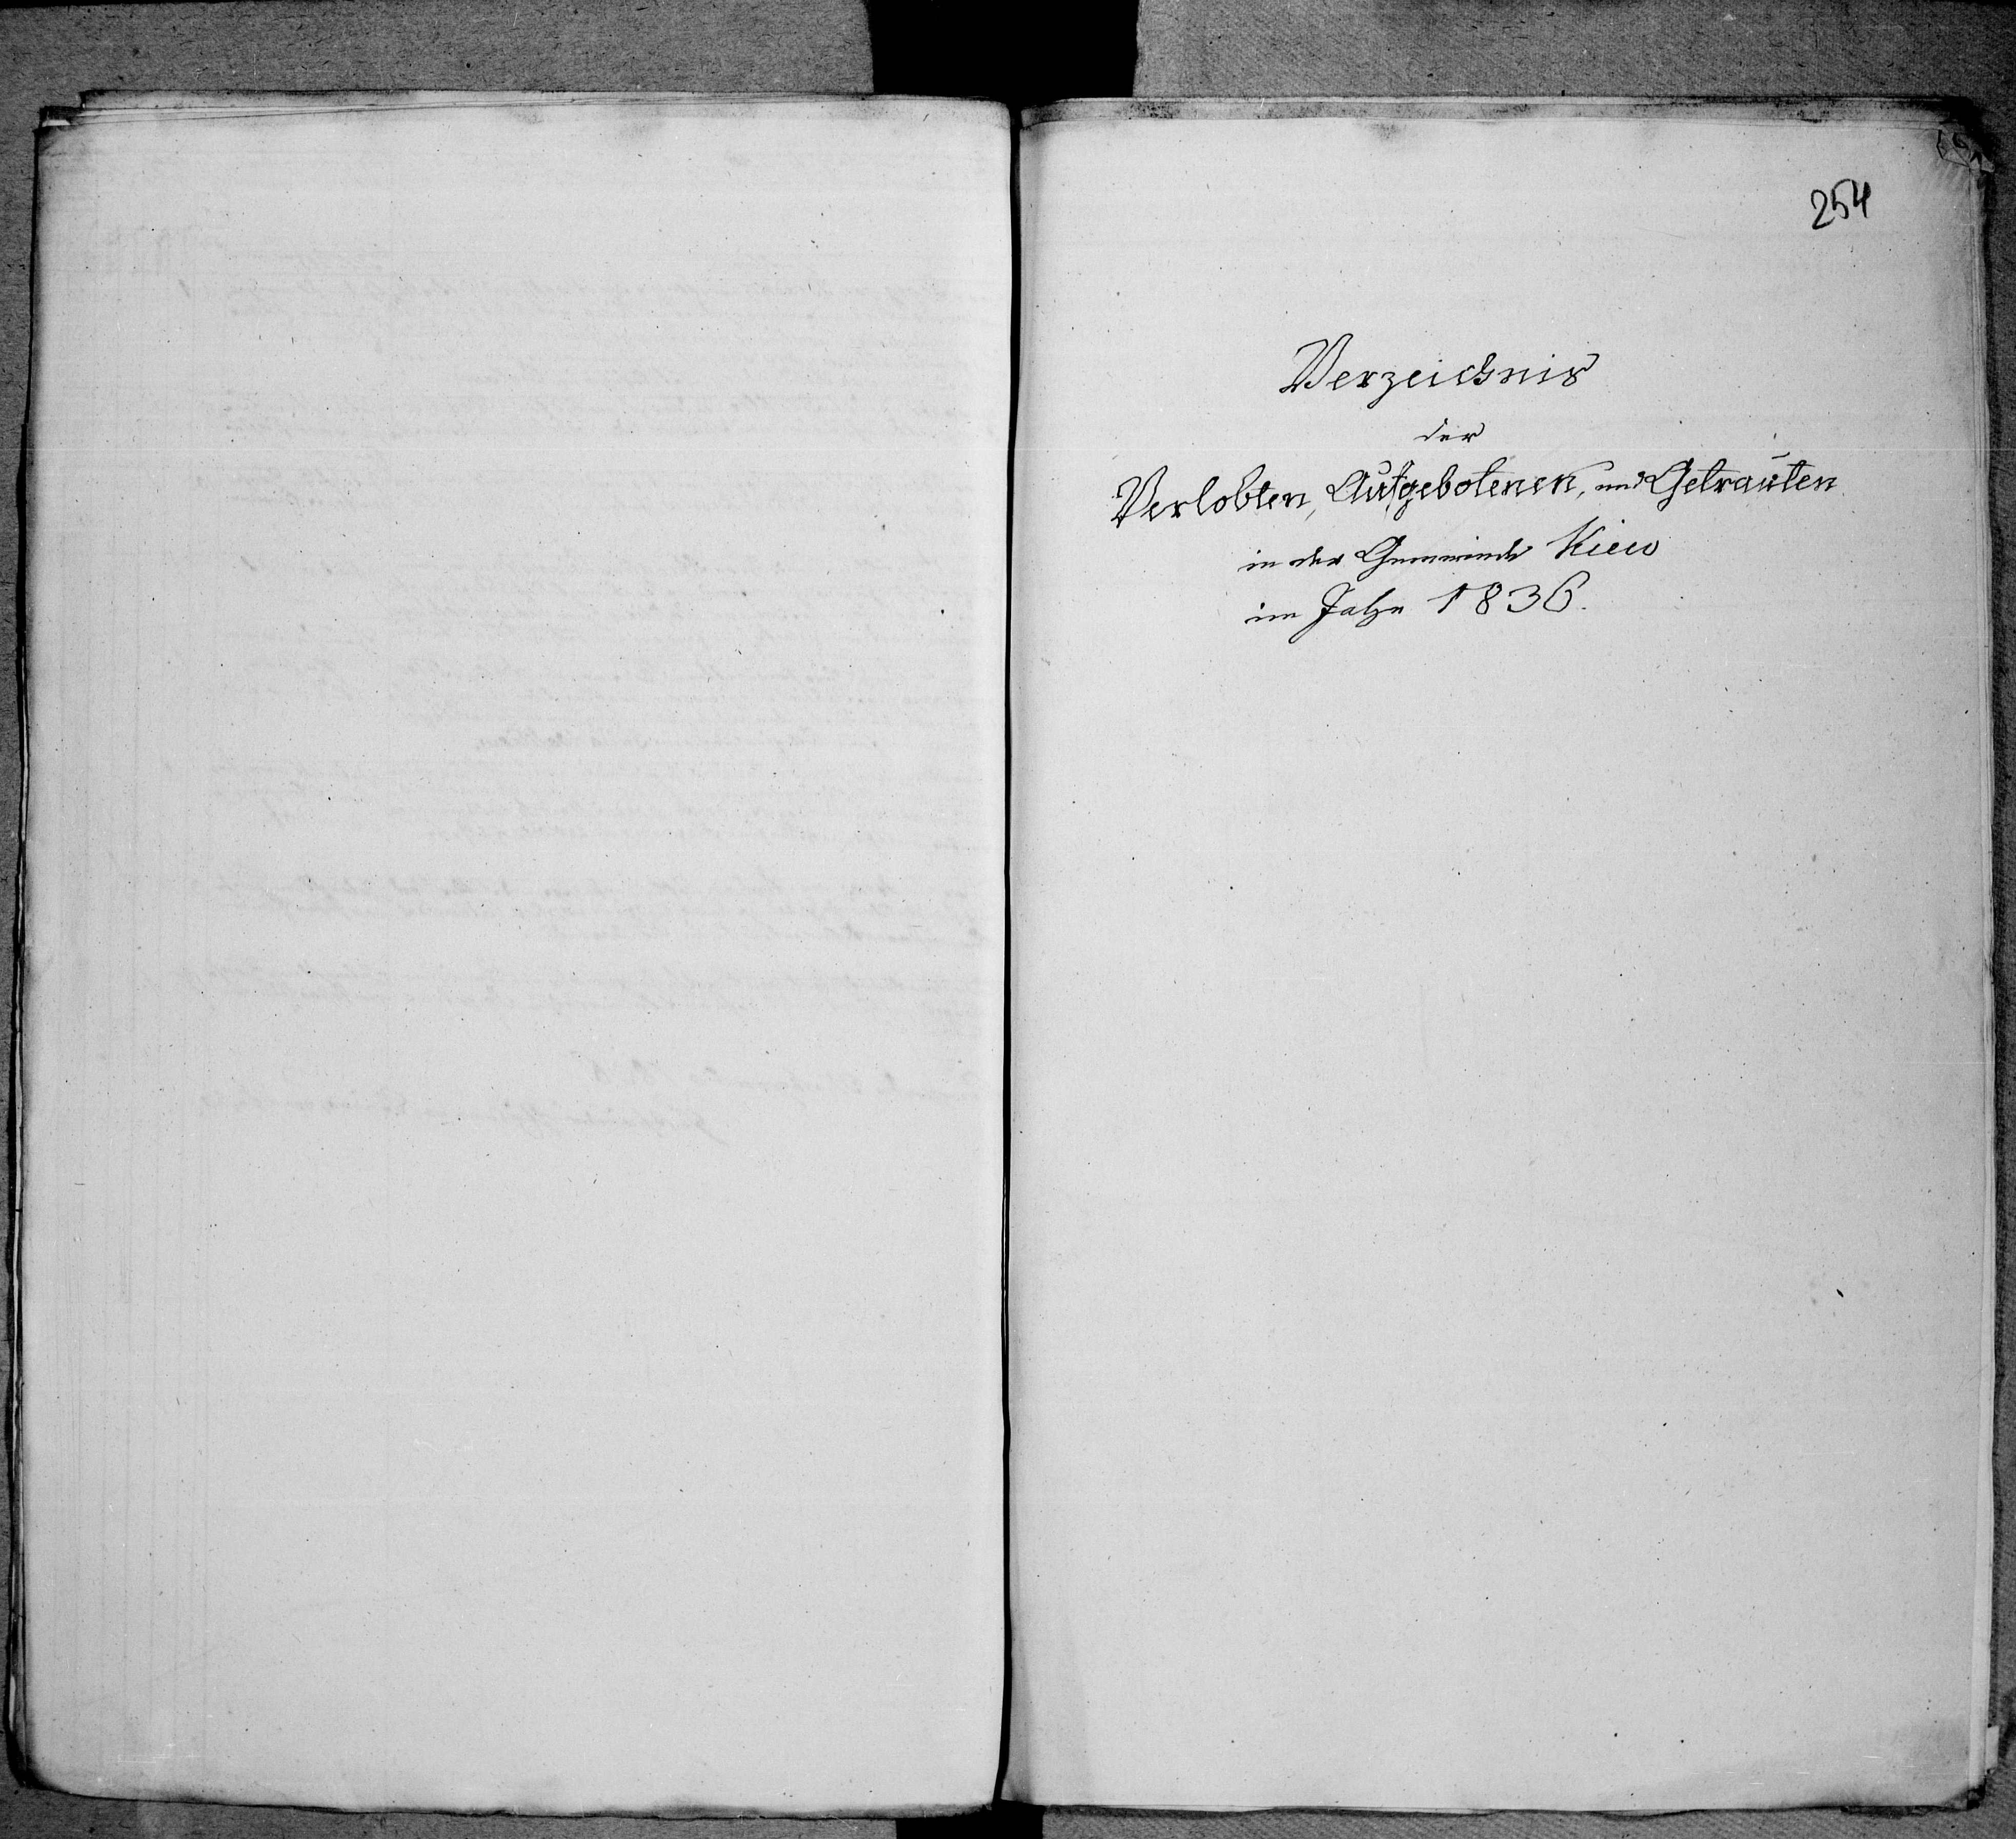 254
Verzeichnis
der
Verlobten, Aufgebotenen, und Getrauten
in der Gemeinde Kiew
im Jahre 1836.